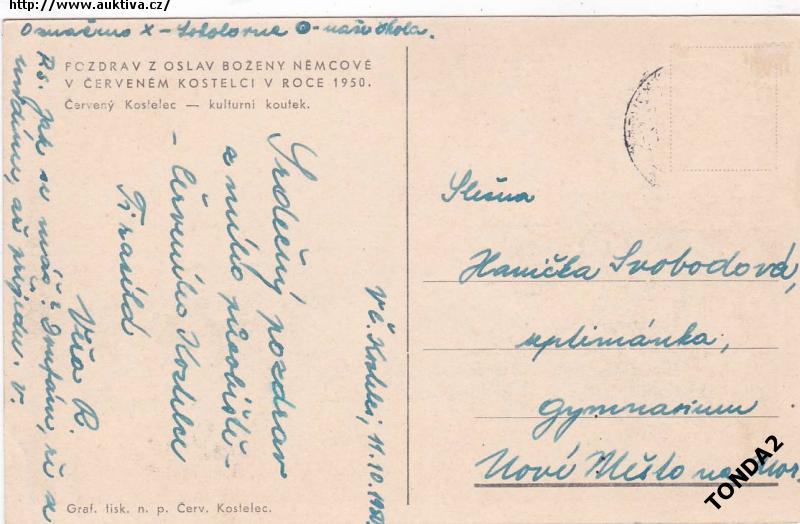 http://www.auktiva.cz/
Označeno X - Sokolovna O - naše škola.
POZDRAV Z OSLAV BOŽENY NĚMCOVÉ
V ČERVENÉM KOSTELCI V ROCE 1950.
Červený Kostelec — kulturní koutek.
Srdečný pozdrav
z mého působiště -
- Červeného Kostelce
Ti zasílá
Věra R.
Ps. Jak se máš? Doufám, že se
uvidíme, až přijedu. V.
V Č. Kostelci, 11.10.
Slečna
Hanička Svobodová,
septimánka,
Gymnasium
Nové Město na Mor.
Graf. tisk. n. p. Červ. Kostelec.
TONDA2